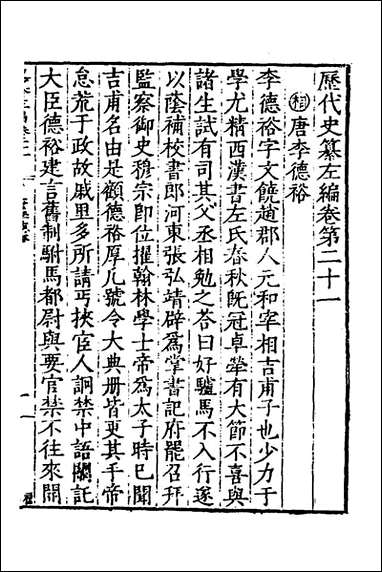 歷代史纂左編卷第二十一
相唐李德裕
李德裕字文饒趙郡人元和宰相吉甫子也少力于
學尤精西漢書左氏春秋既冠卓犖有大節不喜與
諸生試有司其父丞相勉之荅曰好驢馬不入行遂
以蔭補校書郎河東張弘靖辟爲掌書記府罷召拜
監察御史穆宗即位擢翰林學士帝爲太子時已聞
吉甫名由是顧德裕厚凡號令大典冊皆更其手帝
怠荒于政故戚里多所請丐挾宦人詗禁中語關託
大臣德裕建言舊制駙馬都尉與要官禁不往來開